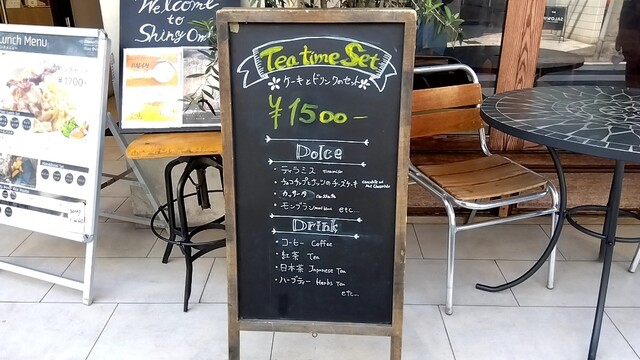 Lunch Menu
¥1700
Welcome
to
Tea time Set
ケーキとドリンクのセット
¥1500-
Dolce
・ティラミス Tiramisu
・チョコチップとナッツのチーズケーキ
・カッサータ Cassata
・モンブラン mont blanc etc...
Drink
・コーヒー Coffee
・紅茶 Tea
・日本茶 Japanese Tea
・ハーブティー Herbs Tea
etc...